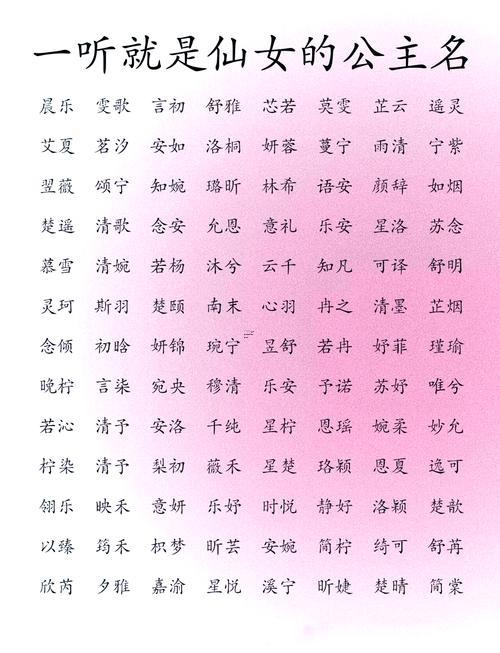 一听就是仙女的公主名
晨乐 雯歌 言初 舒雅 芯若 莫雯 芷云 遥灵
艾夏 茗汐 安如 洛桐 妍蓉 蔓宁 雨清 宁紫
翌薇 颂宁 知婉 璐昕 林希 语安 颜辞 如烟
楚遥 清歌 念安 允恩 意礼 乐安 星洛 苏念
慕雪 清婉 若杨 沐兮 云千 知凡 可译 舒明
灵珂 斯羽 楚颐 南末 心羽 冉之 清墨 芷烟
念倾 初晗 妍锦 琬宁 昱舒 若冉 妤菲 瑾瑜
晚柠 言柒 宛央 穆清 乐安 予诺 苏妤 唯兮
若沁 清予 安洛 千纯 星柠 恩瑶 婉柔 妙允
柠染 清予 梨初 薇禾 星楚 珞颖 恩夏 逸可
翎乐 映禾 意妍 乐妤 时悦 静好 洛颖 楚歆
以臻 筠禾 枳梦 昕芸 安婉 简柠 绮可 舒苒
欣芮 夕雅 嘉渝 星悦 溪宁 昕婕 楚晴 简棠